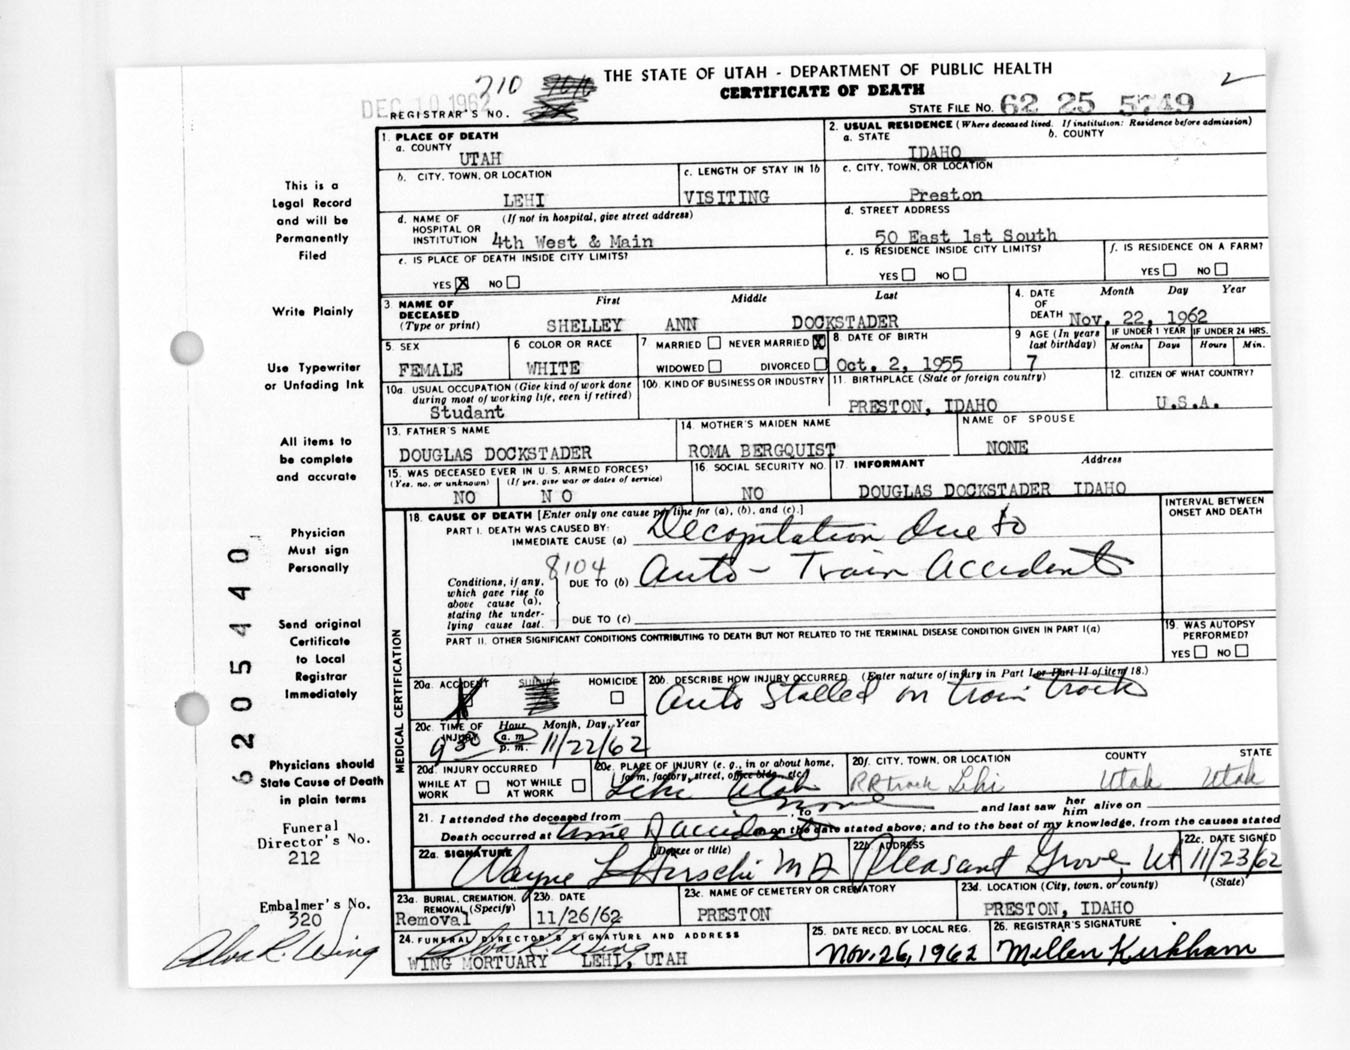 THE STATE OF UTAH - DEPARTMENT OF PUBLIC HEALTH
CERTIFICATE OF DEATH
DEC 10 1962
210
REGISTRAR'S NO.
STATE FILE NO. 62 25 5749
1. PLACE OF DEATH
a. COUNTY
UTAH
2. USUAL RESIDENCE (Where deceased lived. If institution: Residence before admission)
a. STATE
b. COUNTY
IDAHO
b. CITY, TOWN, OR LOCATION
LEHI
c. LENGTH OF STAY IN 1b
VISITING
c. CITY, TOWN, OR LOCATION
Preston
d. NAME OF HOSPITAL OR INSTITUTION
(If not in hospital, give street address)
4th West & Main
d. STREET ADDRESS
50 East 1st South
e. IS PLACE OF DEATH INSIDE CITY LIMITS?
YES X NO
e. IS RESIDENCE INSIDE CITY LIMITS?
YES NO
f. IS RESIDENCE ON A FARM?
YES NO
3. NAME OF DECEASED (Type or print)
First Middle Last
SHELLEY ANN DOCKSTADER
4. DATE OF DEATH
Month Day Year
Nov. 22, 1962
5. SEX
FEMALE
6. COLOR OR RACE
WHITE
7 MARRIED NEVER MARRIED X
WIDOWED DIVORCED
8. DATE OF BIRTH
Oct. 2, 1955
9 AGE (In years last birthday)
7
IF UNDER 1 YEAR
Months Days
IF UNDER 24 HRS.
Hours Min.
10a. USUAL OCCUPATION (Give kind of work done during most of working life, even if retired)
Studant
10b. KIND OF BUSINESS OR INDUSTRY
11. BIRTHPLACE (State or foreign country)
PRESTON, IDAHO
12. CITIZEN OF WHAT COUNTRY?
U.S.A.
13. FATHER'S NAME
DOUGLAS DOCKSTADER
14. MOTHER'S MAIDEN NAME
ROMA BERGQUIST
NAME OF SPOUSE
NONE
15. WAS DECEASED EVER IN U.S. ARMED FORCES?
(Yes, no, or unknown) (If yes, give war or dates of service)
NO NO
16. SOCIAL SECURITY NO.
NO
17. INFORMANT Address
DOUGLAS DOCKSTADER IDAHO
MEDICAL CERTIFICATION
18. CAUSE OF DEATH [Enter only one cause per line for (a), (b), and (c).]
PART I. DEATH WAS CAUSED BY:
IMMEDIATE CAUSE (a) Decapitation Due to
8104
DUE TO (b) Auto - Train Accident
DUE TO (c)
Conditions, if any, which gave rise to above cause (a), stating the underlying cause last.
INTERVAL BETWEEN ONSET AND DEATH
PART II. OTHER SIGNIFICANT CONDITIONS CONTRIBUTING TO DEATH BUT NOT RELATED TO THE TERMINAL DISEASE CONDITION GIVEN IN PART I(a)
19. WAS AUTOPSY PERFORMED?
YES NO
20a. ACCIDENT SUICIDE HOMICIDE
20b. DESCRIBE HOW INJURY OCCURRED. (Enter nature of injury in Part I or Part II of item 18.)
Auto Stalled on train track
20c. TIME OF INJURY
Hour Month, Day, Year
a.m.
p.m.
9 30 11/22/62
20d. INJURY OCCURRED
WHILE AT WORK NOT WHILE AT WORK
20e. PLACE OF INJURY (e. g., in or about home, farm, factory, street, office bldg., etc.)
Lehi Utah
20f. CITY, TOWN, OR LOCATION COUNTY STATE
RR track Lehi Utah Utah
21. I attended the deceased from none, to and last saw her him alive on
Death occurred at time of accident on the date stated above; and to the best of my knowledge, from the causes stated
22a. SIGNATURE (Degree or title)
Wayne L Hirschi MD
22b. ADDRESS
Pleasant Grove, Ut
22c. DATE SIGNED
11/23/62
23a. BURIAL, CREMATION, REMOVAL (Specify)
Removal
23b. DATE
11/26/62
23c. NAME OF CEMETERY OR CREMATORY
PRESTON
23d. LOCATION (City, town, or county) (State)
PRESTON, IDAHO
24. FUNERAL DIRECTOR'S SIGNATURE AND ADDRESS
Alva R. Wing
WING MORTUARY LEHI, UTAH
25. DATE RECD. BY LOCAL REG.
Nov. 26, 1962
26. REGISTRAR'S SIGNATURE
Millen Kirkham
This is a
Legal Record
and will be
Permanently
Filed
Write Plainly
Use Typewriter
or Unfading Ink
All items to
be complete
and accurate
Physician
Must sign
Personally
Send original
Certificate
to Local
Registrar
Immediately
Physicians should
State Cause of Death
in plain terms
Funeral
Director's No.
212
Embalmer's No.
320
Alva R. Wing
6205440